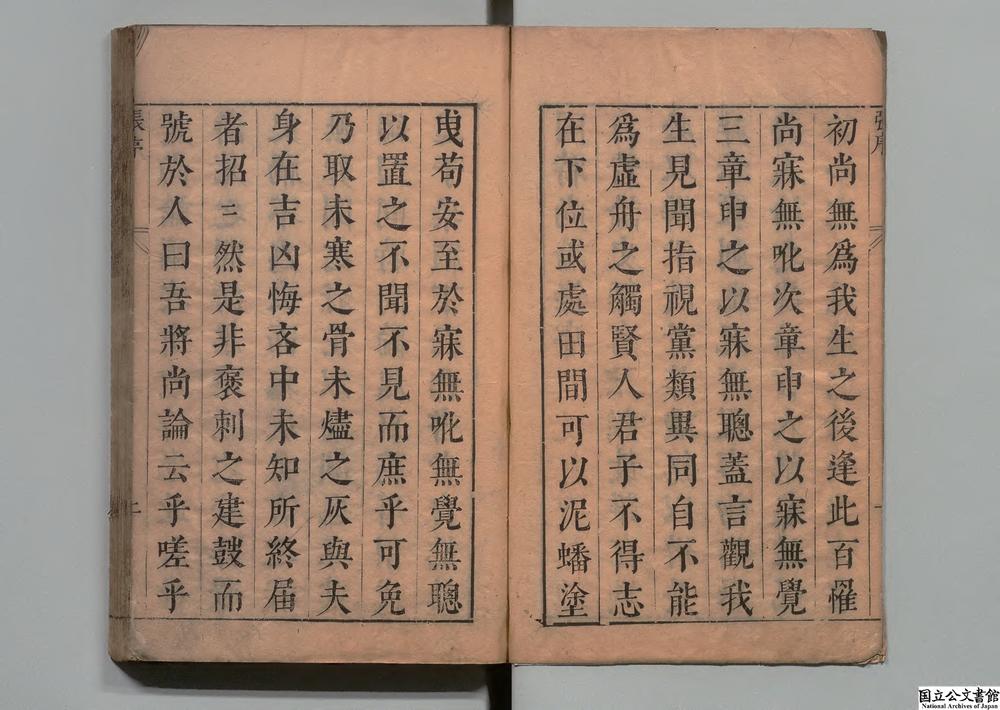 初尚無爲我生之後逢此百罹
尚寐無吪次章申之以寐無覺
三章申之以寐無聰蓋言觀我
生見聞指視黨類異同自不能
爲虛舟之觸賢人君子不得志
在下位或處田間可以泥蟠塗
曳苟安至於寐無吪無覺無聰
以置之不聞不見而庶乎可免
乃取未寒之骨未燼之灰與夫
身在吉凶悔吝中未知所終届
者招三然是非褒刺之建鼓而
號於人曰吾將尚論云乎嗟乎
張序
国立公文書館
National Archives of Japan